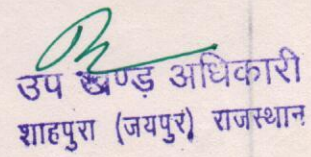 उप खण्ड़ अधिकारी
शाहपुरा (जयपुर) राजस्थान